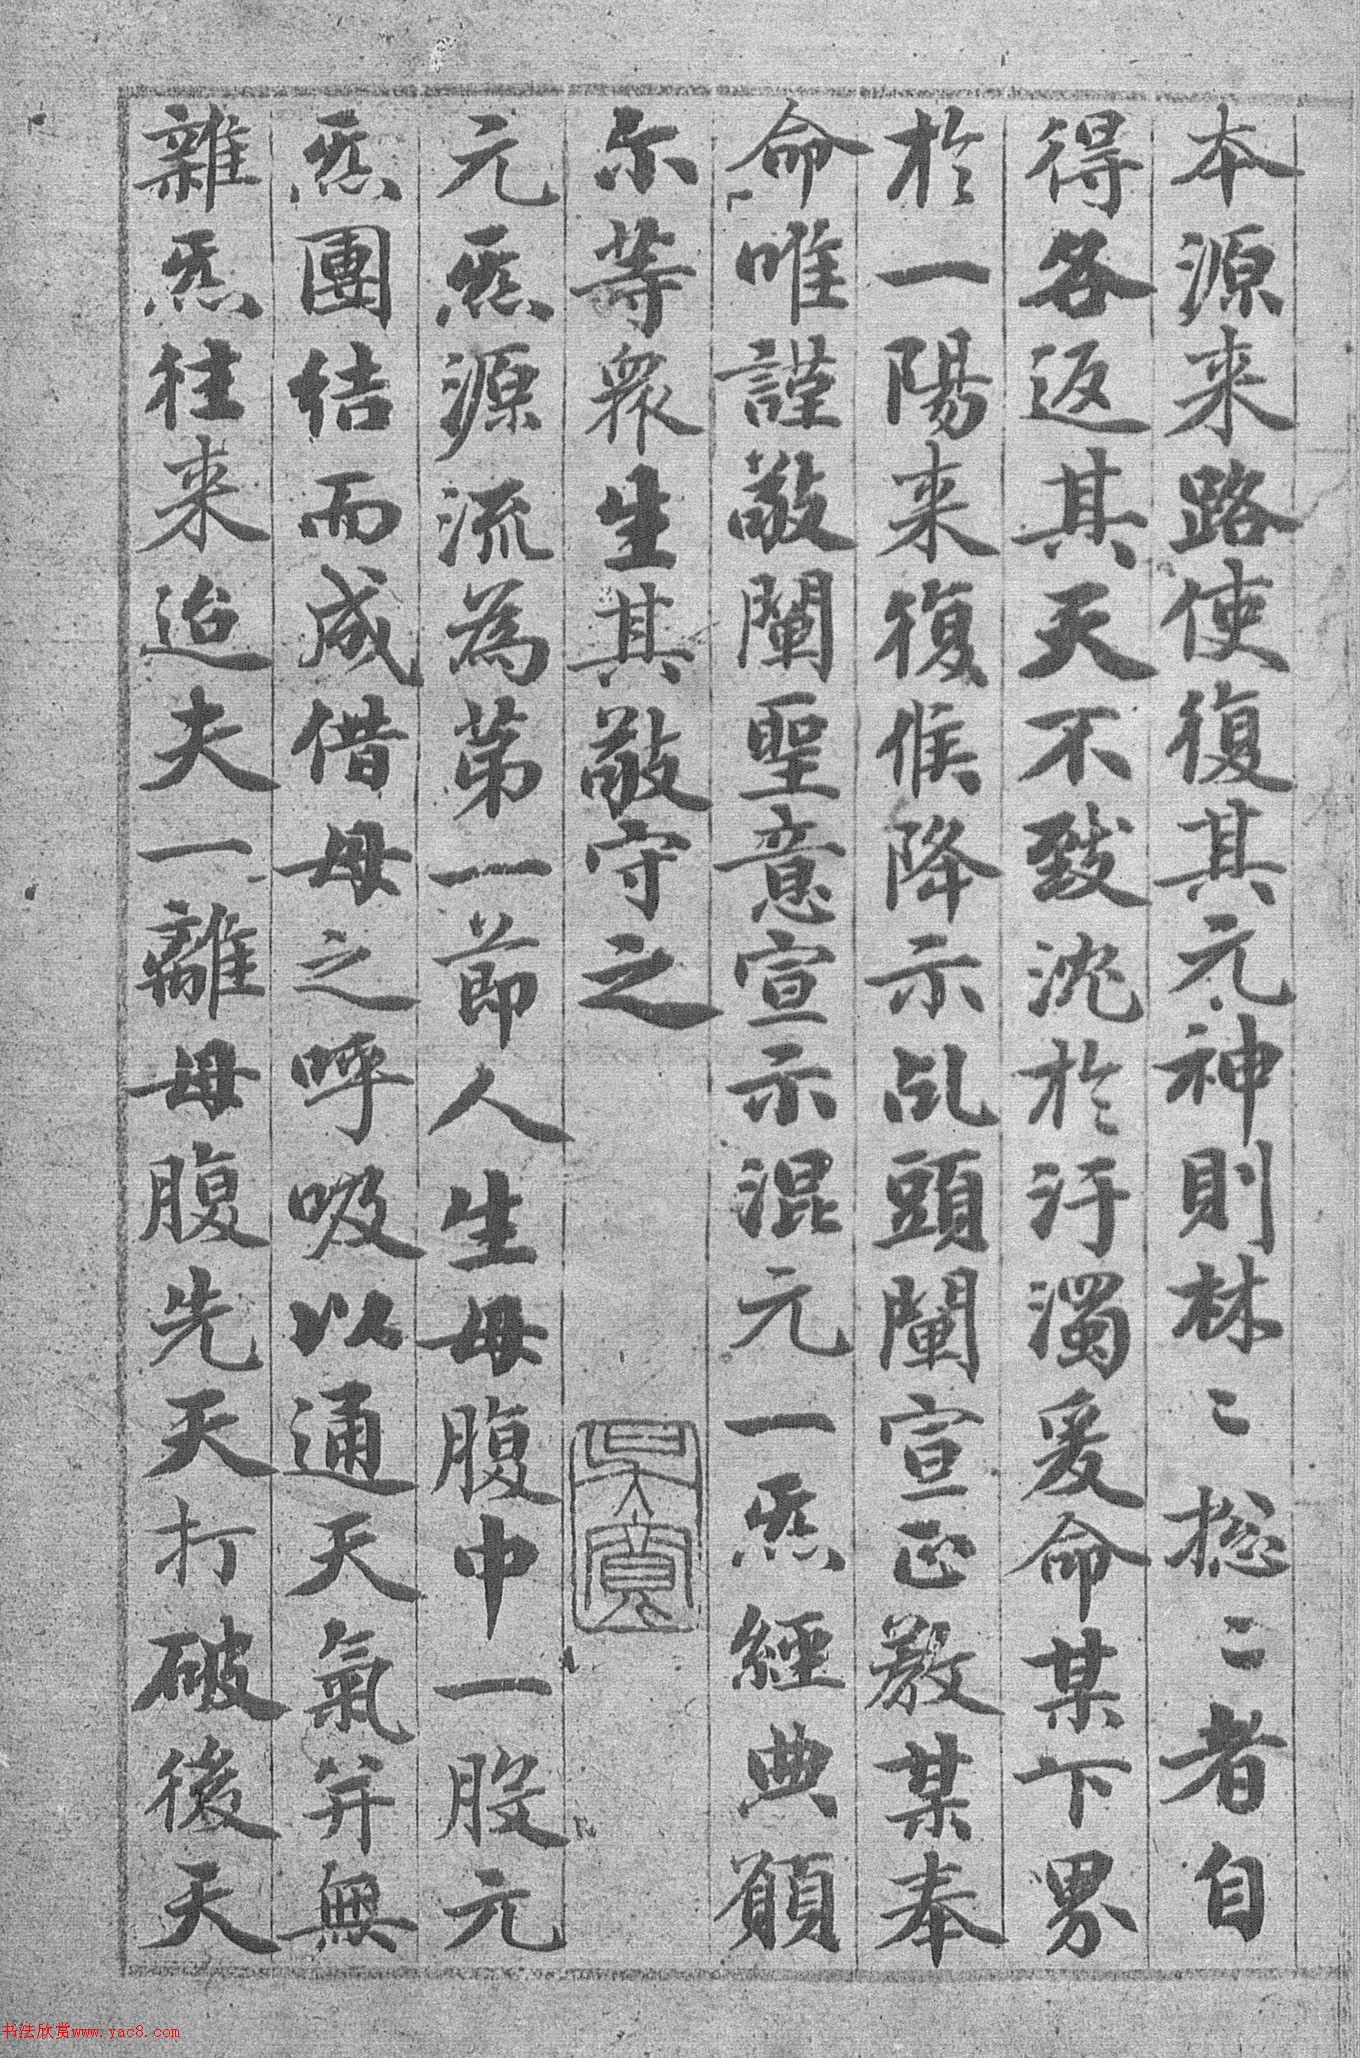 本源来路使復其元神則林〻総〻者自
得各返其天不致沈於汙濁爰命某下界
於一陽来復候降示乩頭闡宣正教某奉
命唯謹敬闡聖意宣示混元一炁經典願
尔等衆生其敬守之
元炁源流為苐一節人生母腹中一股元
炁團结而成借母之呼吸以通天氣并無
雜炁往来迨夫一離母腹先天打破後天
书法欣赏www.yac8.com